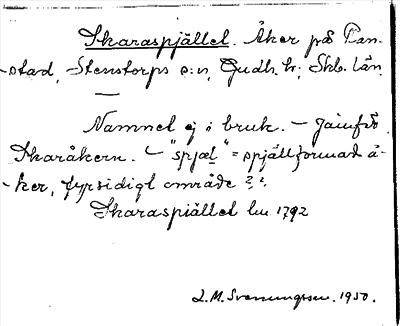 Skaraspjället. Åker på Ran-
stad, Stenstorps s:n, Gudh. h; Skb. län.
—
Namnet ej i bruk. – Jämför
Skaråkern. – "spjæl" = spjällformad å-
ker, fyrsidigt område?
Skaraspiället lm 1792
L. M. Svenungsson. 1950.